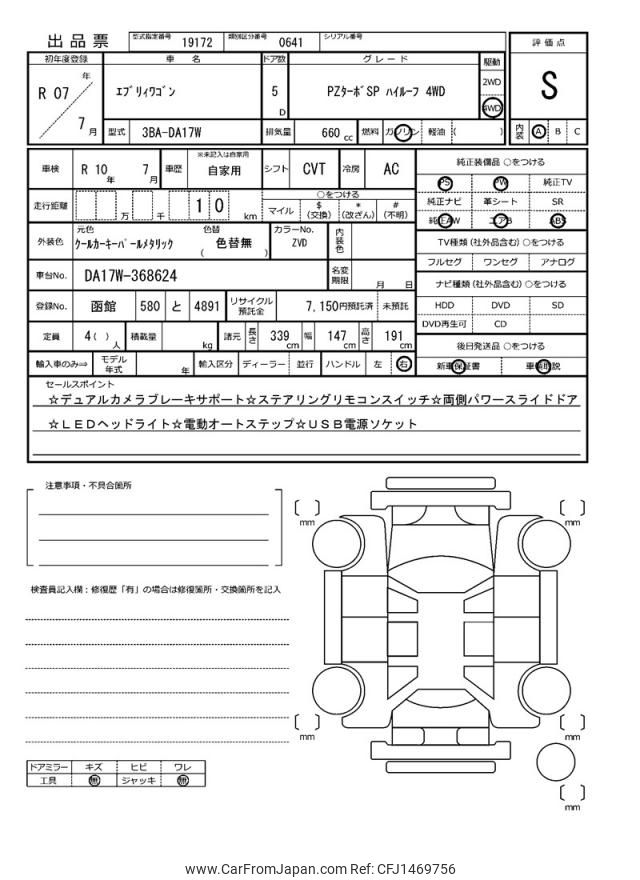 出品票 型式指定番号 19172 類別区分番号 0641 シリアル番号
初年度登録 車 名 ドア数 グレード 駆動 評価点
R 07 年 エブリィワゴン 5 D PZターボSP ハイルーフ 4WD 2WD S
4WD
7 月 型式 3BA-DA17W 排気量 660 cc 燃料 ガソリン 軽油 ( ) 内装 A B C
車検 R 10 年 7 月 車歴 ※未記入は自家用 自家用 シフト CVT 冷房 AC 純正装備品 ○をつける
PS PW 純正TV
走行距離 万 千 1 0 km ○をつける 純正ナビ 革シート SR
マイル $ (交換) * (改ざん) # (不明) 純正AW エアB ABS
外装色 元色 クールカーキーパールメタリック 色替 ( 色替無 ) カラーNo. ZVD 内装色 TV種類 (社外品含む) ○をつける
フルセグ ワンセグ アナログ
車台No. DA17W-368624 名変期限 月 日 ナビ種類 (社外品含む) ○をつける
登録No. 函館 580 と 4891 リサイクル預託金 7,150円預託済 未預託 HDD DVD SD
DVD再生可 CD
定員 4( ) 人 積載量 kg 諸元 長さ 339 cm 幅 147 cm 高さ 191 cm 後日発送品 ○をつける
輸入車のみ⇒ モデル年式 年 輸入区分 ディーラー 並行 ハンドル 左 右 新車保証書 車輌取説
セールスポイント
☆デュアルカメラブレーキサポート☆ステアリングリモコンスイッチ☆両側パワースライドドア
☆LEDヘッドライト☆電動オートステップ☆USB電源ソケット
注意事項・不具合箇所
mm mm
検査員記入欄：修復歴「有」の場合は修復箇所・交換箇所を記入
mm mm
ドアミラー キズ ヒビ ワレ
工具 無 ジャッキ 無
mm
www.CarFromJapan.com Ref: CFJ1469756